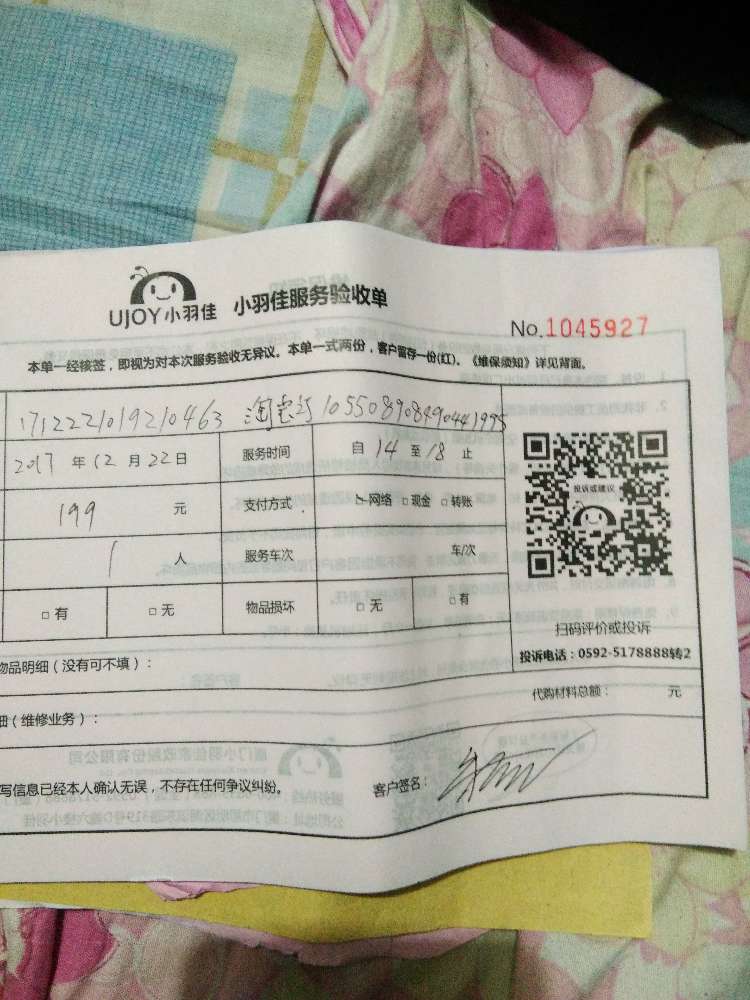 UJOY小羽佳 小羽佳服务验收单
No.1045927
本单一经核签，即视为对本次服务验收无异议。本单一式两份，客户留存一份(红)。《维保须知》详见背面。
1712221019210463 淘宝
2017 年 12 月 22 日 服务时间 自 14 至 18 止
投诉或建议
199 元 支付方式 网络 □ 现金 □ 转账
1 人 服务车次 车/次
□ 有 □ 无 物品损坏 □ 无 □ 有
扫码评价或投诉
投诉电话：0592-5178888转2
物品明细（没有可不填）：
代购材料总额： 元
细（维修业务）：
写信息已经本人确认无误，不存在任何争议纠纷。 客户签名：